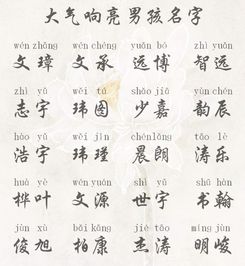 大气响亮男孩名字
wén zhāng wén chéng yuǎn bó zhì yuǎn
文璋 文承 远博 智远
zhì yǔ wěi tú shào jiā yùn chén
志宇 玮图 少嘉 韵辰
hào yǔ wěi jǐn chén lǎng tāo lè
浩宇 玮瑾 晨朗 涛乐
huà yè wén yuán shì yǔ shū hàn
桦叶 文源 世宇 书翰
jùn xù bǎi kāng jié tāo míng jùn
俊旭 柏康 杰涛 明峻